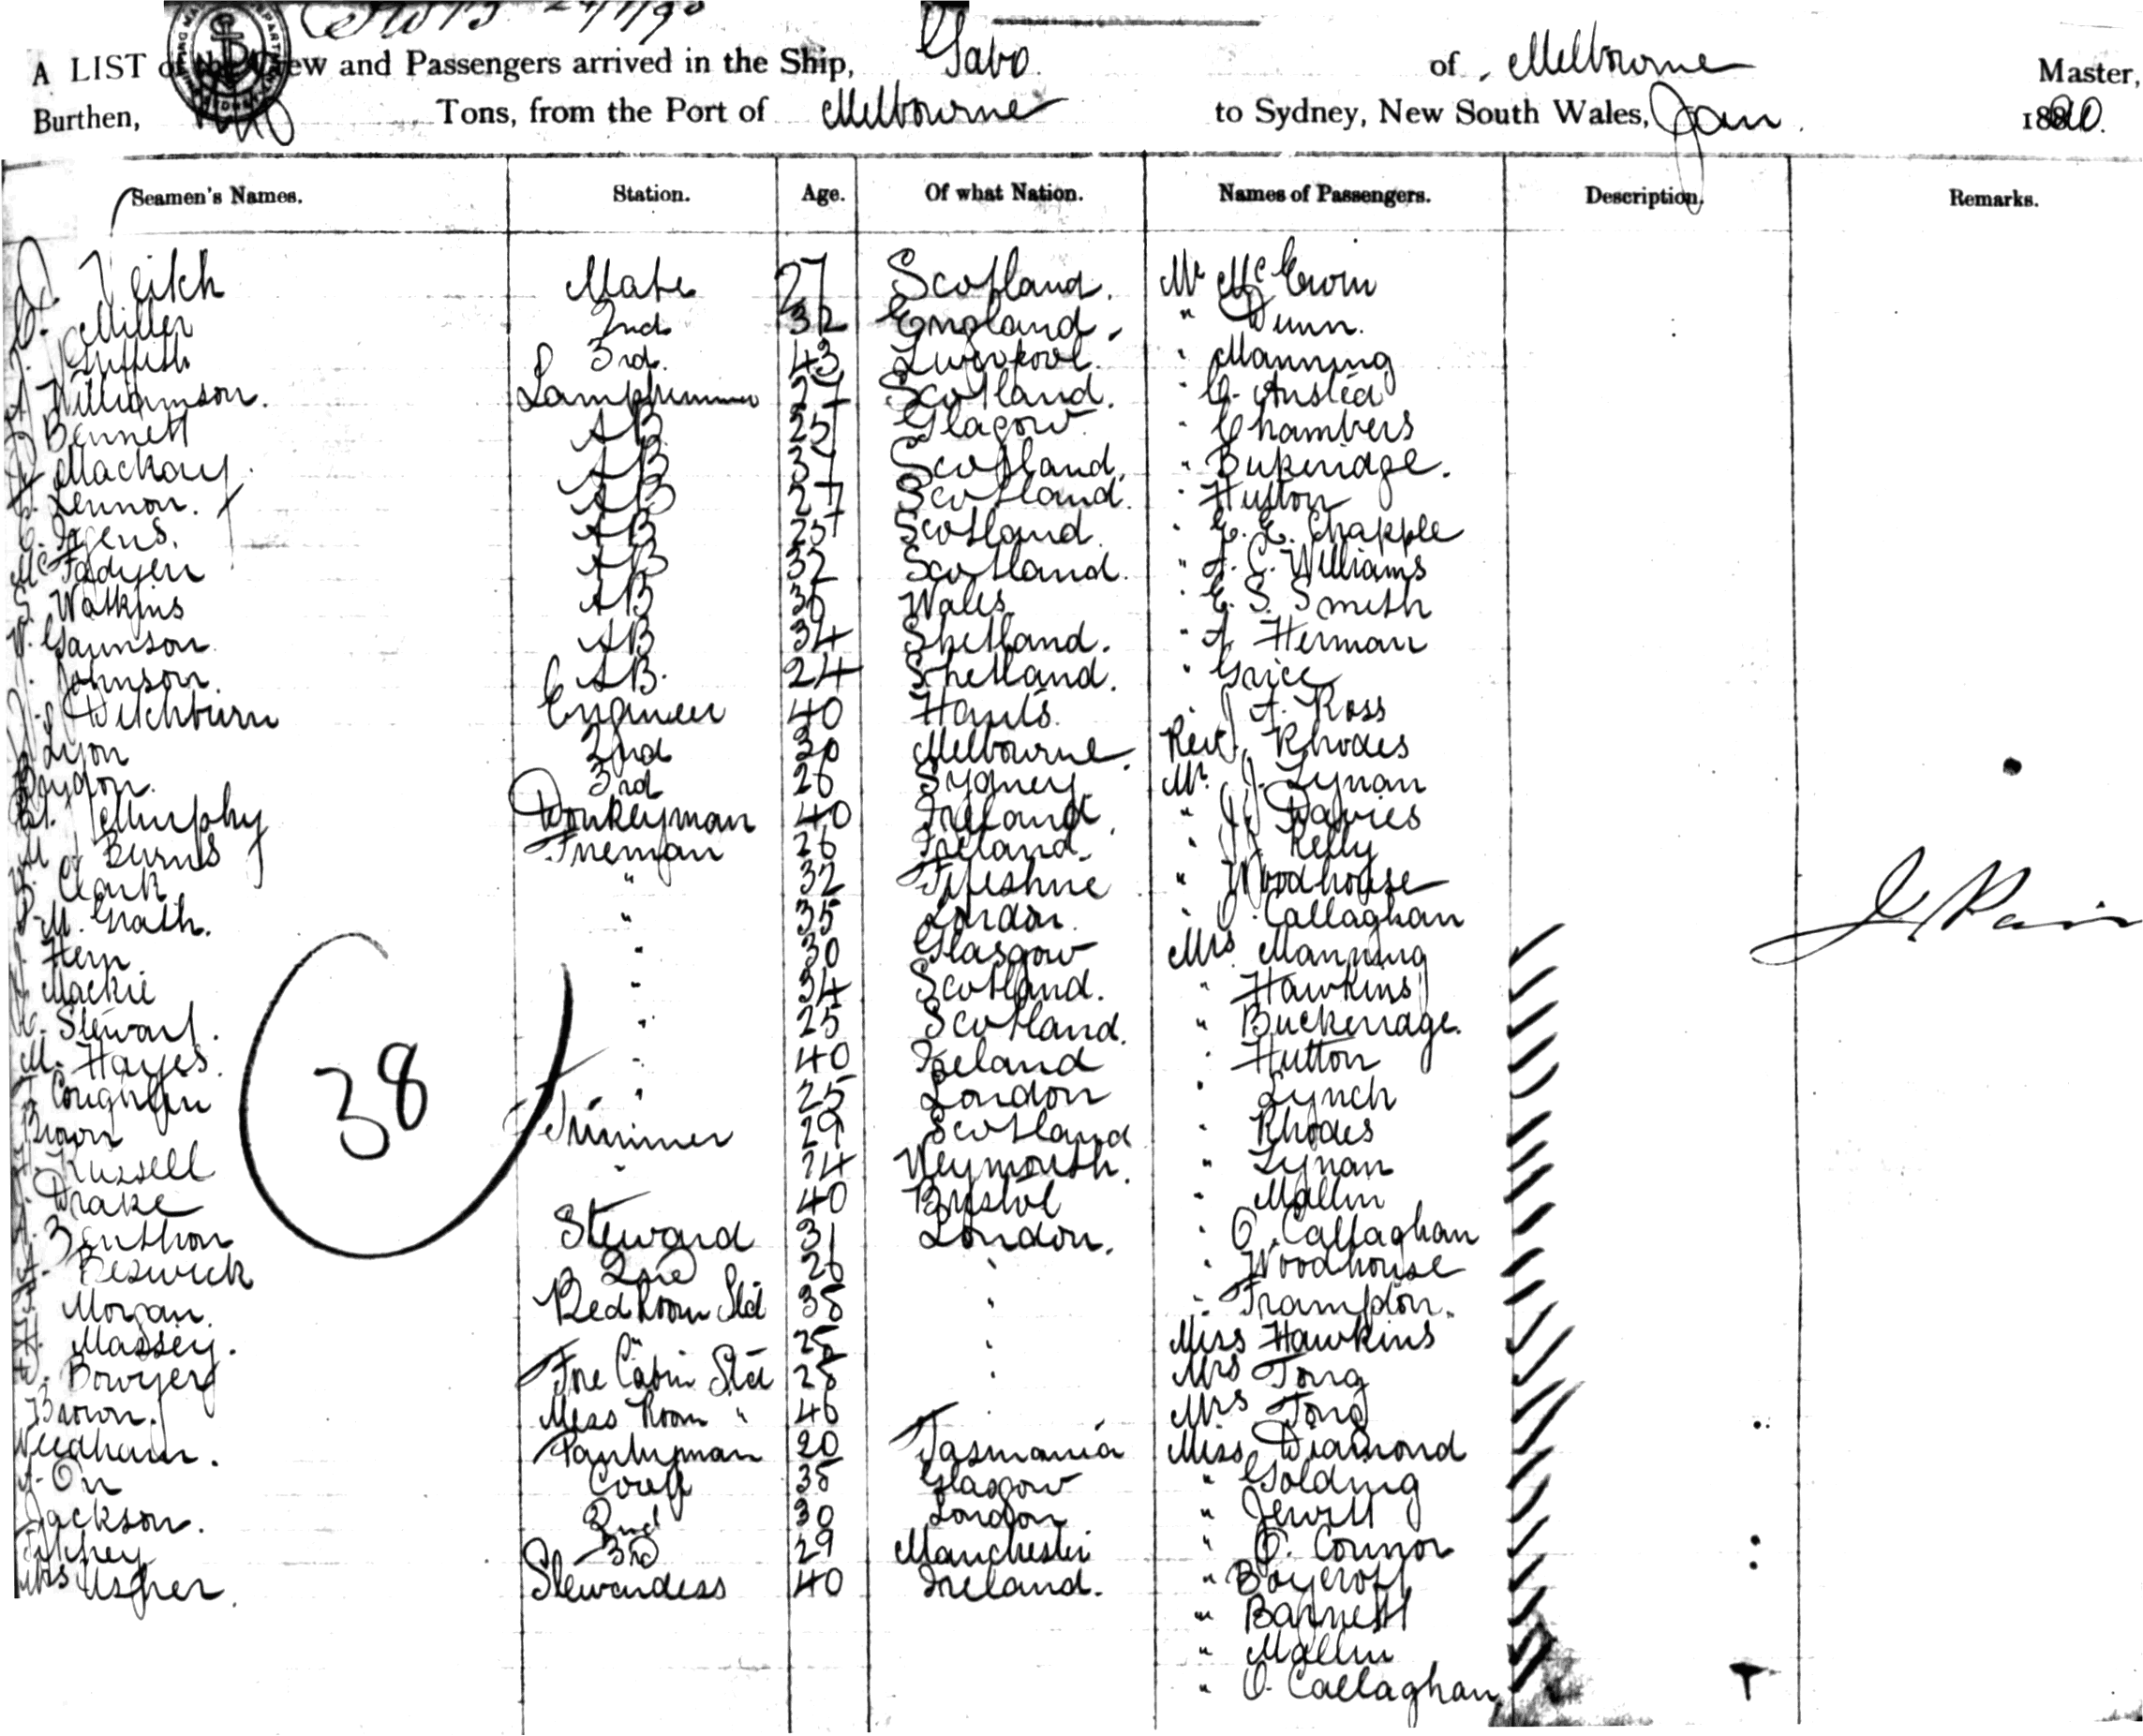 24/1/90
A LIST of the Crew and Passengers arrived in the Ship, Gabo of Melbourne Master,
Burthen, Tons, from the Port of Melbourne to Sydney, New South Wales, Jan. 1890.
Seamen's Names. Station. Age. Of what Nation. Names of Passengers. Description. Remarks.
Veitch Mate 27 Scotland. Mr McEwin
Miller 2nd 32 England. " Dunn.
Griffith 3rd. 43 Liverpool. " Manning
A Williamson. Lamptrimmer 27 Scotland. " C. Ansted
Bennett AB 25 Glagow. " Chambers
Mackay. AB 37 Scotland. " Bukeridge.
Lennon. AB 27 Scotland. " Hutton
C. Igens. AB 25 Scotland. " E. E. Chapple
McFadyen AB 32 Scotland. " A. C. Williams
S. Watkins AB 36 Wales " E. S. Smith
W. Gaunson AB 34 Shetland. " A Herman
J. Johnson. AB. 24 Shetland. " Grice
J. Ditchburn Engineer 40 Hants. " J A. Ross
Lyon 2nd 30 Melbourne. Rev J. Rhodes
Brydon. 3rd 26 Sydney Mr. J. Lynan
Murphy Donkeyman 40 Ireland. " J Davies
M Burns Fireman 26 Ireland. " J. Kelly
Clark " 32 Fifeshire " Woodhouse
McGrath. " 35 London. " O. Callaghan
Hern " 30 Glasgow Mrs Manning
Mackie " 34 Scotland. " Hawkins
C. Stewart. " 25 Scotland. " Buckeridge.
M. Hayes. " 40 Ireland " Hutton
Coughlin " 25 London " Lynch
Brown Trimmer 29 Scotland " Rhodes
Russell " 24 Weymouth. " Lynan
Drake 40 Bristol " Mallin
A. Zenthon Steward 31 London. " O. Callaghan
A. Beswick 2nd 26 " " Woodhouse
Morgan. Bedroom Std 38 " " Frampton.
H. Massey. " 25 " Miss Hawkins
Bowyer Fore Cabin Std 28 " Mrs Tong
Brown. Mess Room " 46 " Mrs Tong
Needham. Pantryman 20 Tasmania Miss Diamond
A. On Cook 38 Glasgow " Golding
Jackson. 2nd 30 London " Jewitt
3rd 29 Manchester " O. Connor
Mrs Usher. Stewardess 40 Ireland. " Boycroft
" Barnett
" Mallin
" O. Callaghan
38